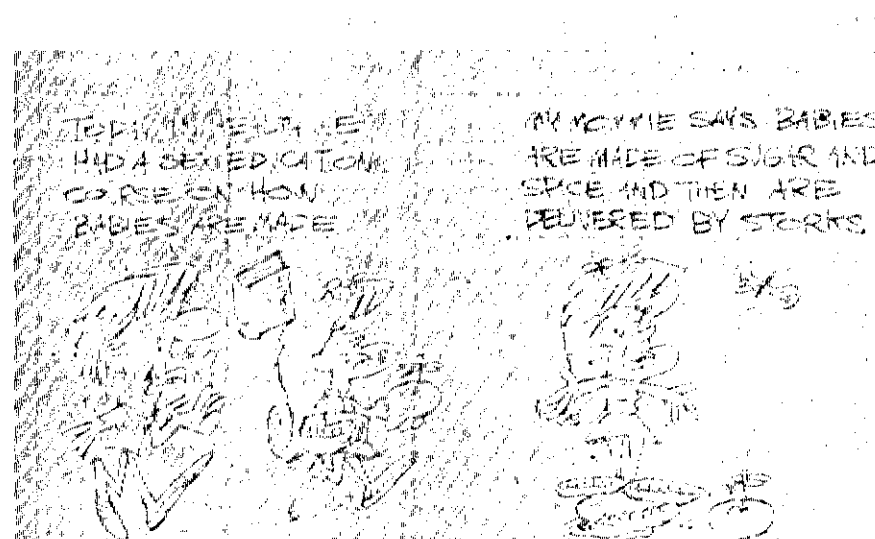 HAD A SEX EDICATION
CORSE ON HOW
BABIES ARE MADE
MY MOMMIE SAYS BABIES
ARE MADE OF SUGAR AND
SPICE AND THEN ARE
DELIVERED BY STORKS.